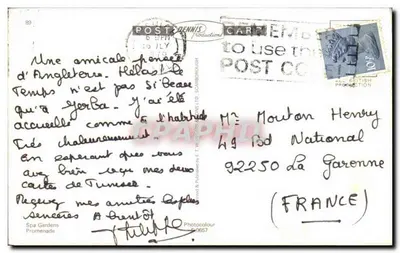 POST CARD
DENNIS
Productions
REMEMB
to use the
POST CO
Une amicale pensée
d'Angleterre. Hélas ! Le
Temps n'est pas si beau
qu'à Jerba. J'ai été
accueilli comme à l'habitude
Très chaleureusement.
En espérant que vous
avez bien reçu mes deux
cartes de Tunisie.
Recevez mes amitiés les plus
sincères A bientôt
Philippe
Mr Mouton Henry
49 Bd National
92250 La Garenne
(FRANCE)
Spa Gardens
Promenade
Photocolour